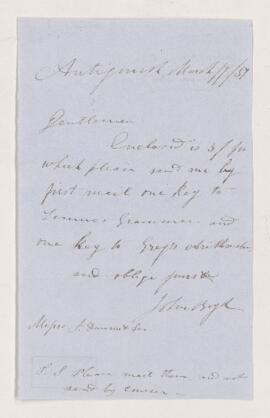 Antigonish March 17/57
Gentlemen
Enclosed is 3/ for
which please send me by
first mail one Key to
Grammar and
one Key to Greys Arithmetic
and oblige yours
John Boyd
Messrs J. Dawson & Son
P.S. Please mail them and not
send by courier